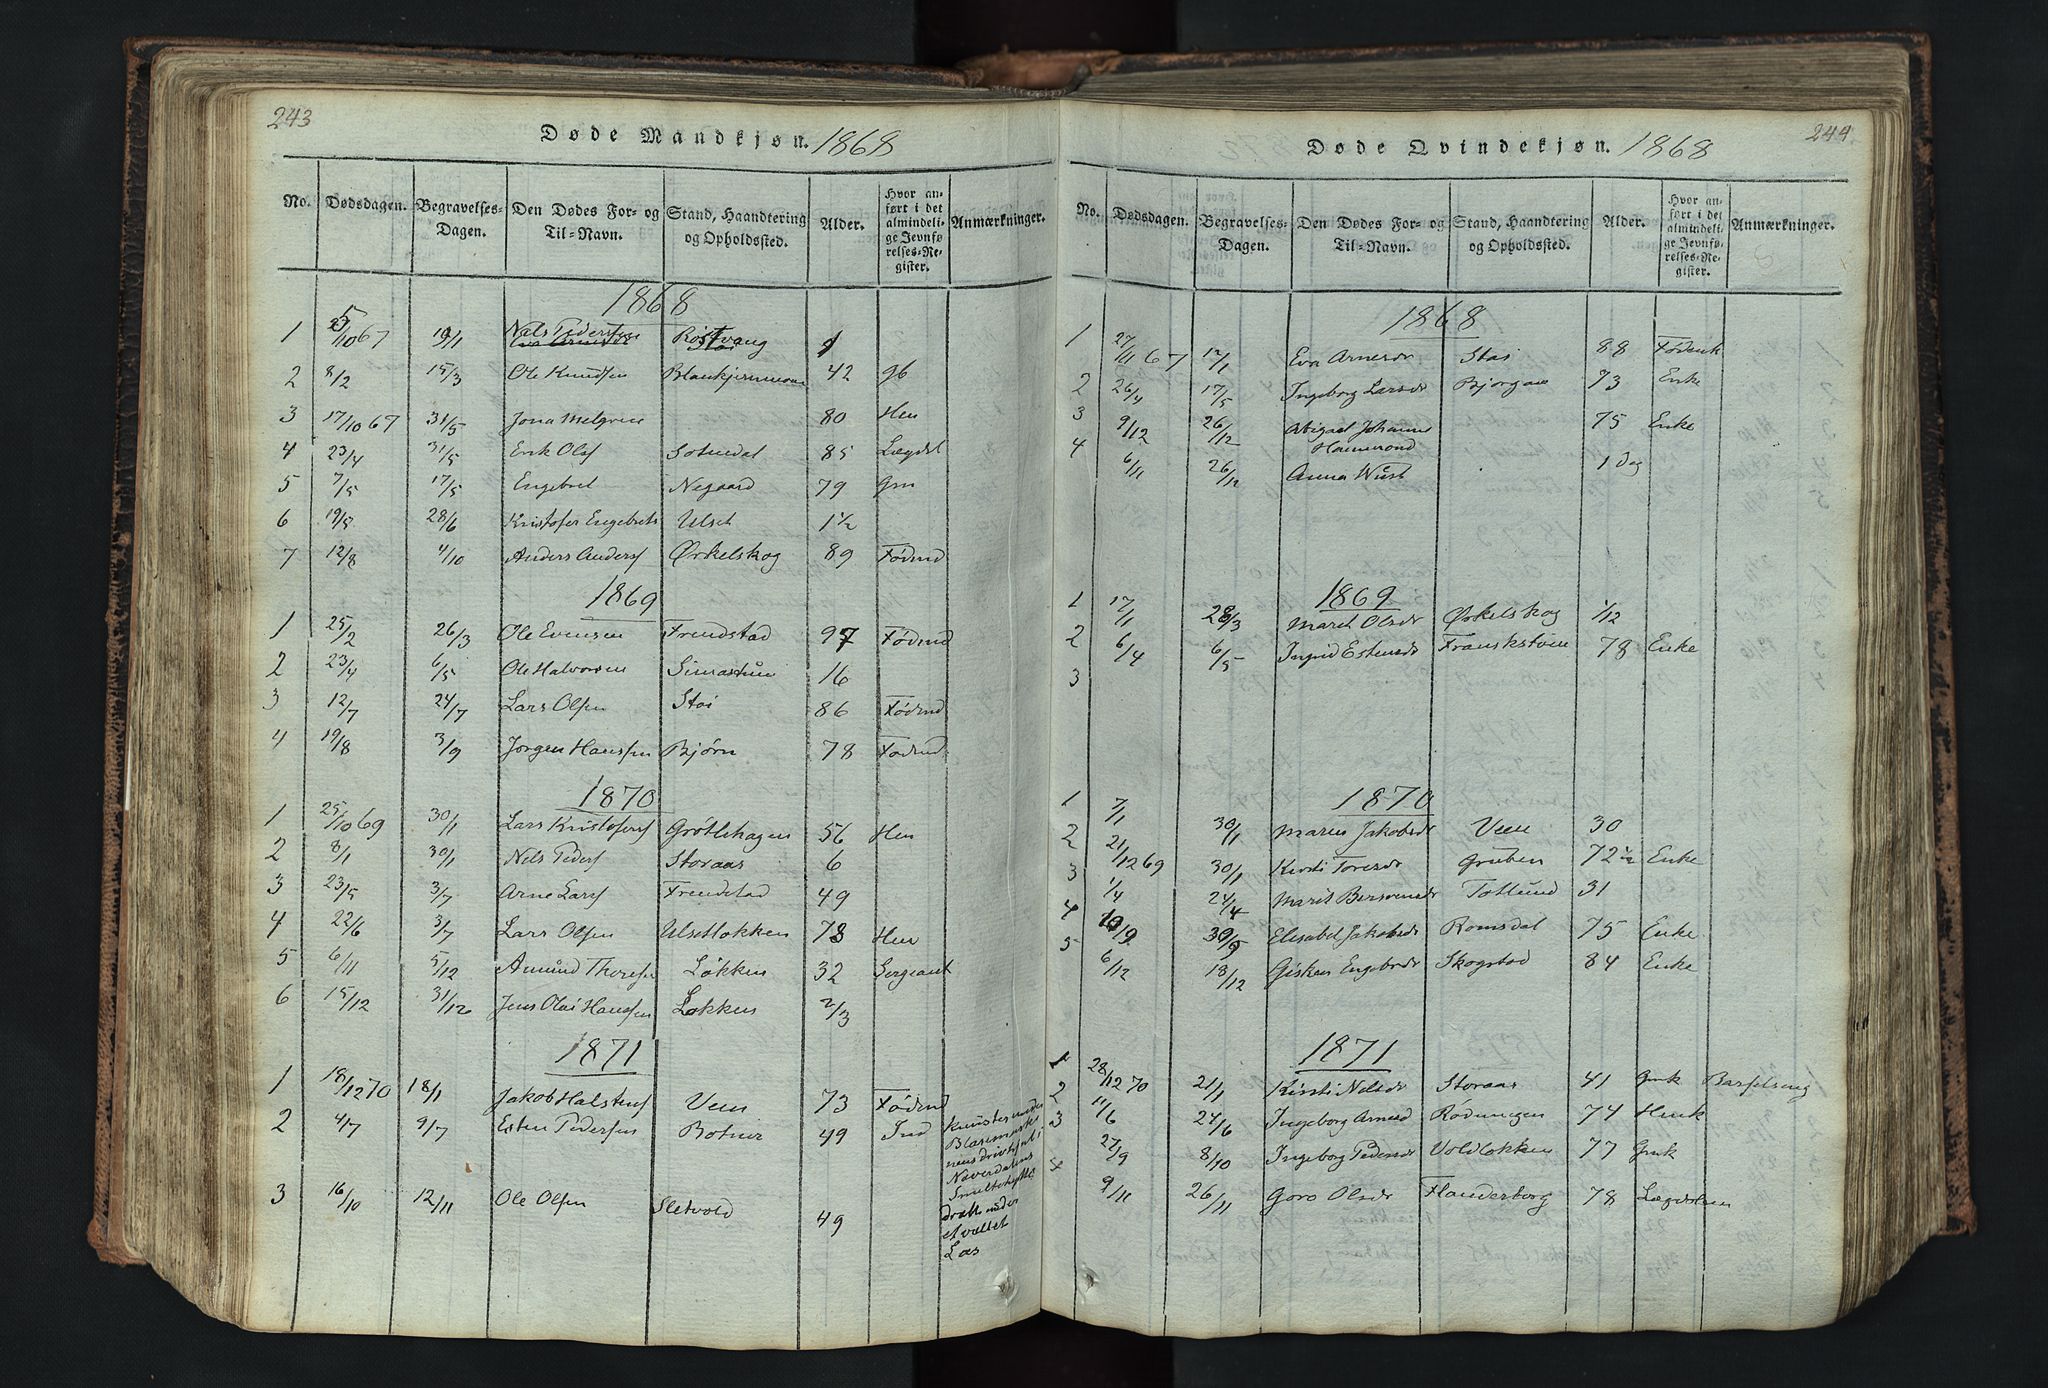 243
Døde Mandkjøn. 1868
No. Dødsdagen. Begravelses-Dagen. Den Dødes For- og Til-Navn. Stand, Haandtering og Opholdssted. Alder. Hvor anført i det almindelige Jevnførelses-Register. Anmærkninger.
1868
1 10 67 Nels Pedersen Røstvang
2 8/2 15/3 Ole Knudsen 42 gb
3 17/10 67 31/5 Jona Melgren 80
4 23/4 31/5 Erik Olsf 85 Lægdsl
5 7/5 17/5 Engebret Negaard 79 Gm
6 19/5 28/6 Kristofer Engebrets Ulset 1 1/2
7 12/8 4/10 Anders Andersf Ørkelskog 89 Fødrd
1869
1 25/2 26/3 Ole Evensen Frendstad Fødrd
2 23/4 6/5 Ole Halvorsen 16
3 12/7 24/7 Lars Olsen Stai 86 Fødrd
4 19/8 3/9 Jørgen Hanssen Bjørn 78 Fødrd
1870
1 25/10 69 30/1 Lars Kristofersf Grøtlihagen 56
2 8/1 30/1 Nels Pedersf Storaas 6
3 23/5 3/7 Arne Larsf Frendstad 49
4 22/6 3/7 Lars Olsen Ulsetløkken
5 6/11 5/12 Amund Løkken 32 Sergeant
6 15/12 31/12 Jens Olai Hansen Løkken 2/3
1871
1 18/12 70 18/1 Jakob Halstensf Veen 73 Fødrd
2 4/7 9/7 Esten Pedersen 49 Ind
3 16/10 12/11 Ole Olsen Sletvold 49 under et væltet Læs
244
Døde Qvindekjøn. 1868
No. Dødsdagen. Begravelses-Dagen. Den Dødes For- og Til-Navn. Stand, Haandtering og Opholdssted. Alder. Hvor anført i det almindelige Jevnførelses-Register. Anmærkninger.
1868
1 27/11 67 12/1 Eva Arnesdr Stai 88
2 26/4 17/5 Ingeborg Larsdr 73 Enke
3 9/12 26/12 Abigael Johanne 75 Enke
Hammond
4 6/11 26/12 Anna Wüst 1 Dag
1869
1 17/1 28/3 Marit Olsdr Ørkelskog 1/12
2 6/4 6/5 Ingrid Estensdr 78 Enke
3
1870
1 7/1 30/1 Maren Jakobsdr Veen 30
2 21/12 69 30/1 Kirsti Toresdr Gruben 72 1/2 Enke
3 1/4 24/4 Marit Totlund 31
4 10/9 30/9 Elisabet Jakobsdr Romsdal 75 Enke
5 6/12 18/12 Engebrdr Skogstad 84 Enke
1871
1 28/12 70 21/1 Kirsti Nelsdr Storaas 41 Gmk Barselseng
2 11/6 24/6 Ingeborg Arnesd Rødningen 74
3 27/9 8/10 Ingeborg Pedersdr Voldløkken 77 Gmk
4 9/11 26/11 Goro Olsdr Flanderborg 78